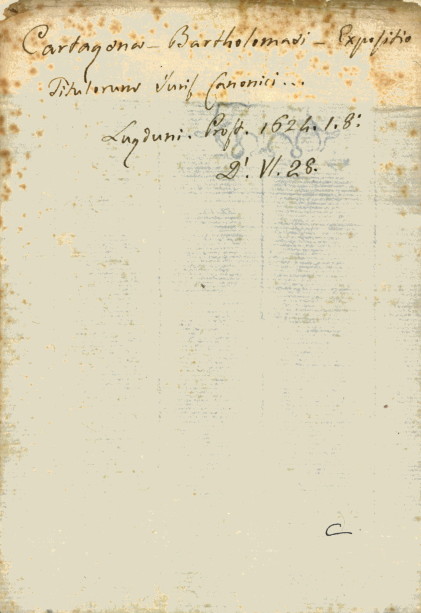 Cartagena - Bartholomaei - Expositio
Titulorum Juris Canonici...
Lugduni. Prost. 1624. 1. 8º
D'. VI. 28.
C